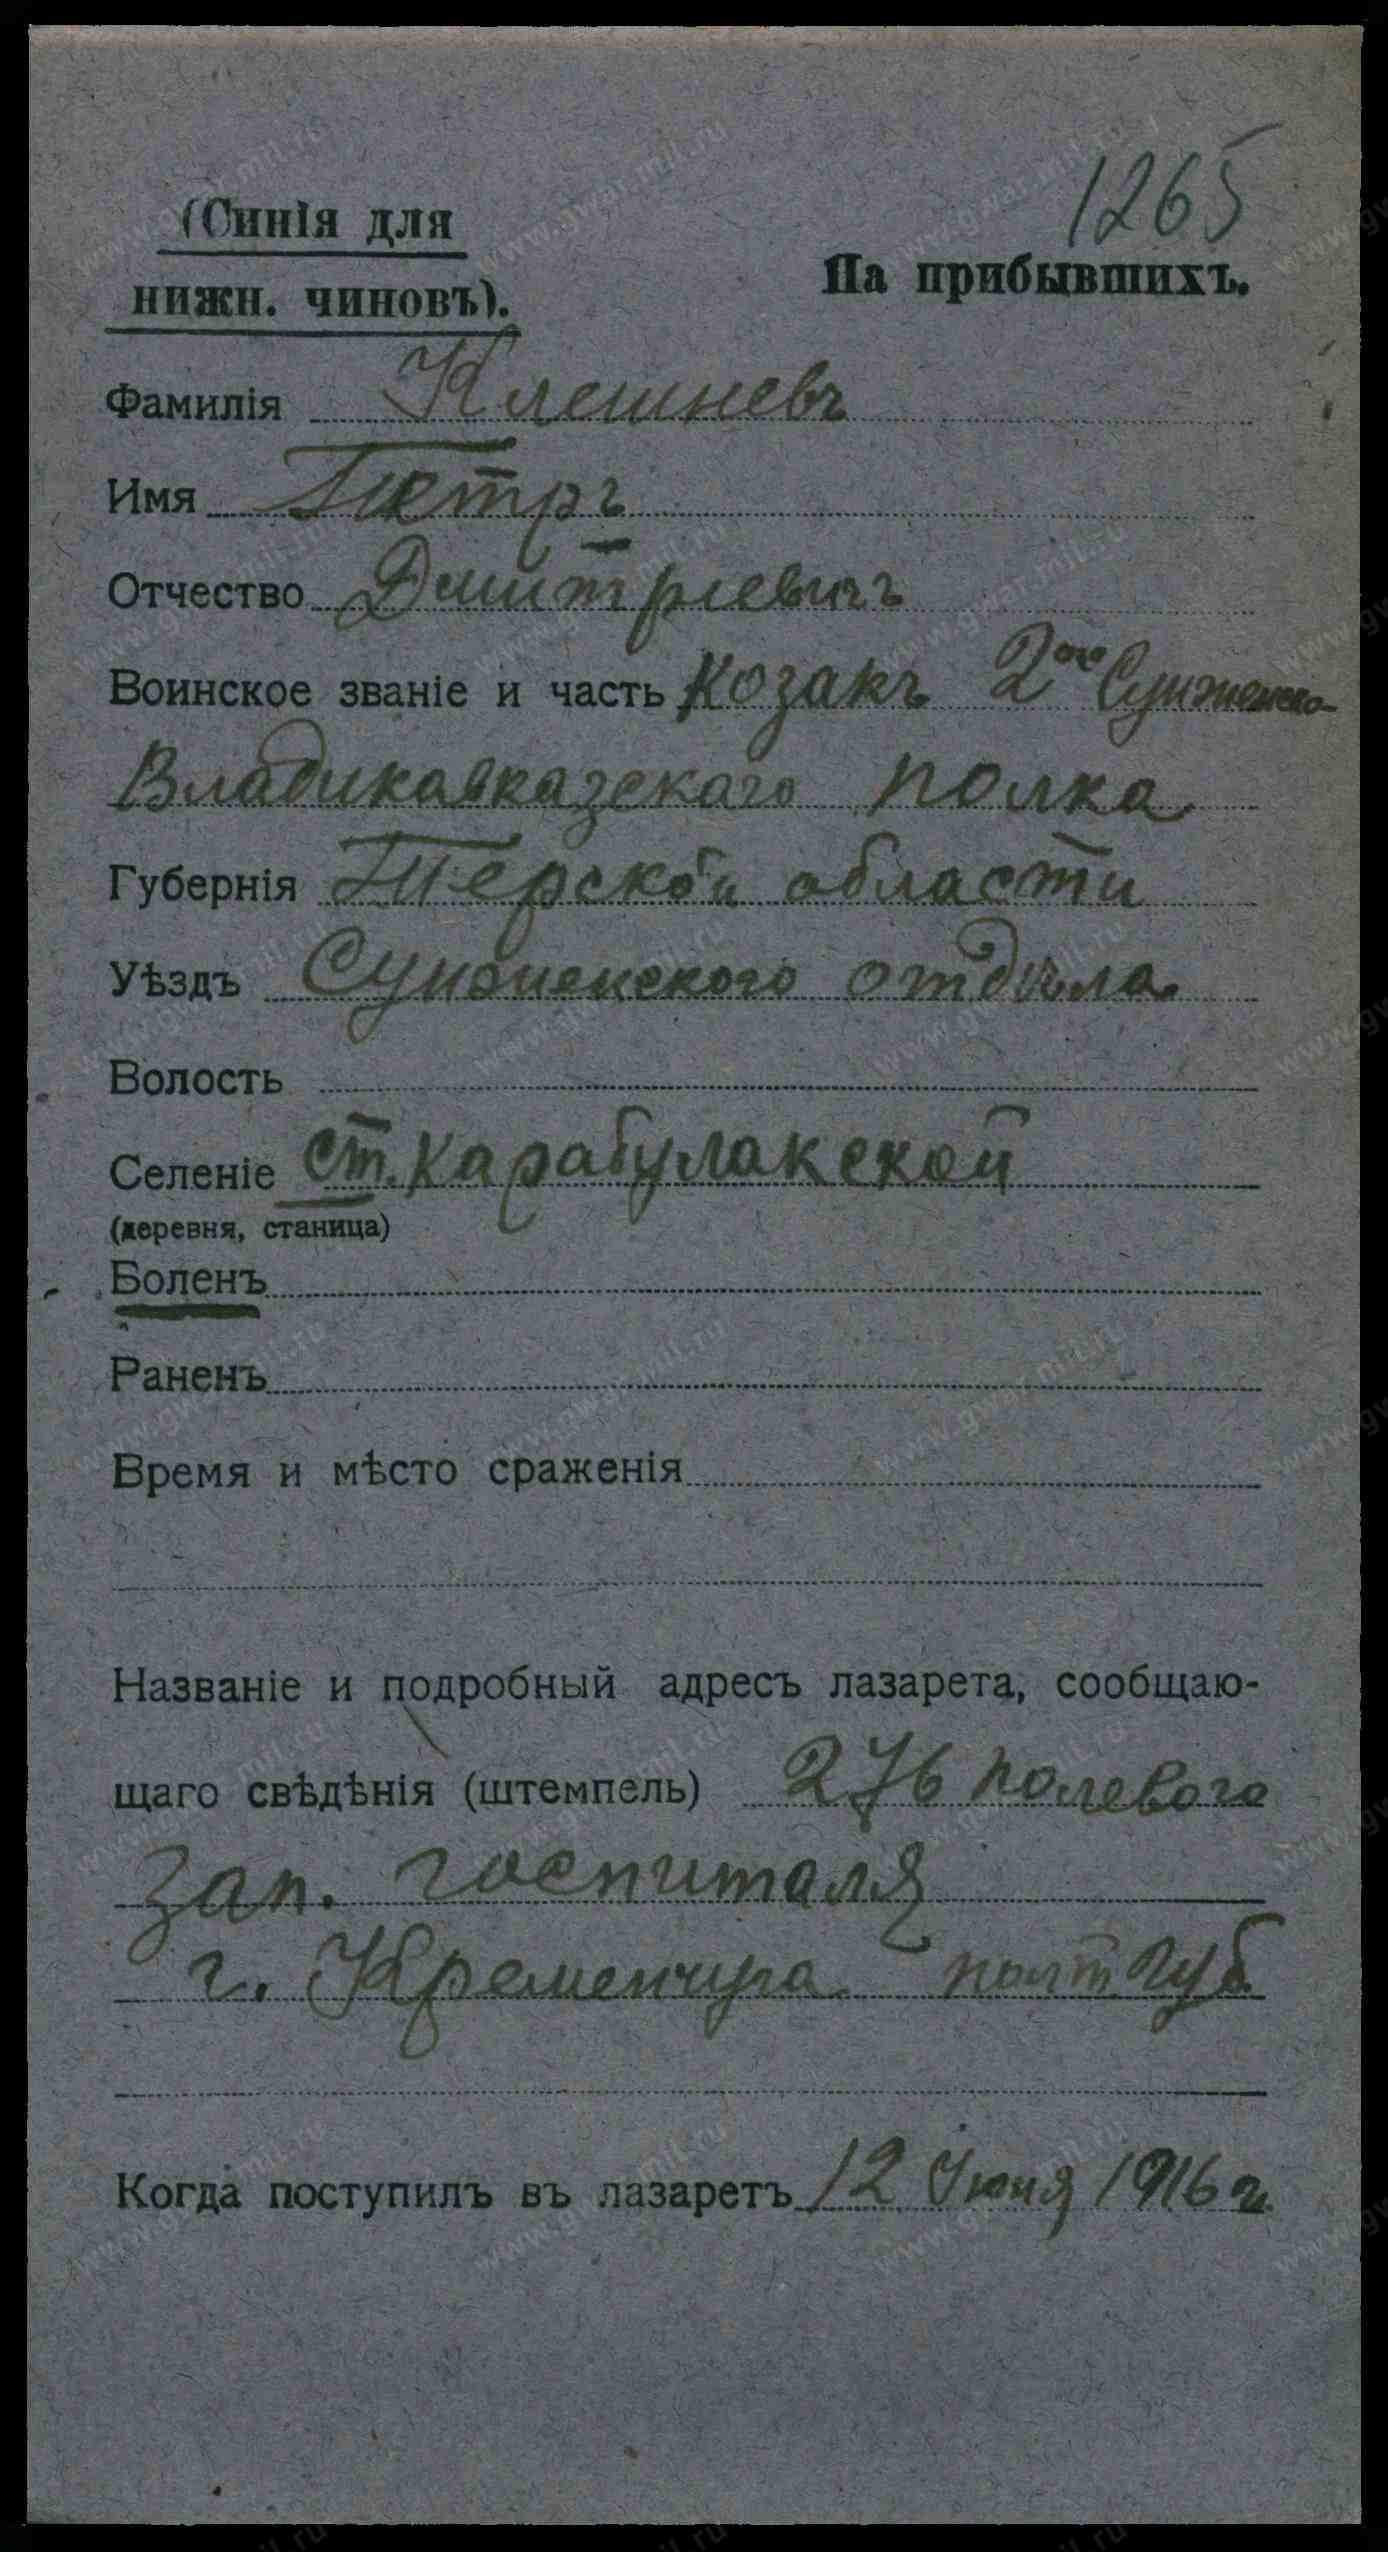 1265
(Синія для
нижн. чиновъ).
На прибывшихъ.
Фамилія Клешневъ
Имя Петръ
Отчество Дмитріевичъ
Воинское званіе и часть козакъ 2ого Сунженско-
Владикавказского полка
Губернія Терской области
Уѣздъ Сунженского отдѣла
Волость
Селеніе ст. Карабулакской
(деревня, станица)
Боленъ
Раненъ
Время и мѣсто сраженія
Названіе и подробный адресъ лазарета, сообщаю-
щаго свѣдѣнія (штемпель) 276 полевого
зап. госпиталя
г. Кременчуга полт. губ.
Когда поступилъ въ лазаретъ 12 Июня 1916 г.
www.gwar.mil.ru